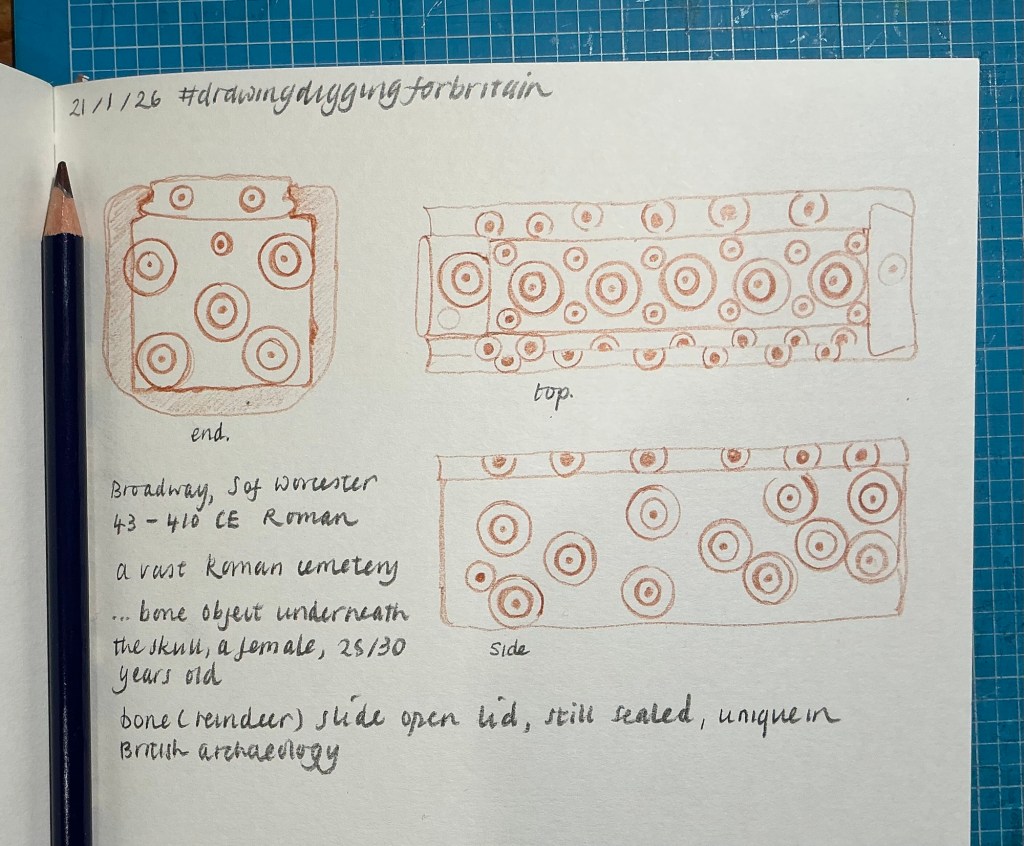 21/1/26 #drawingdiggingforbritain
end.
top.
side
Broadway, S of Worcester
43 - 410 CE Roman
a vast Roman cemetery
... bone object underneath
the skull, a female, 25/30
years old
bone (reindeer) slide open lid, still sealed, unique in
British archaeology